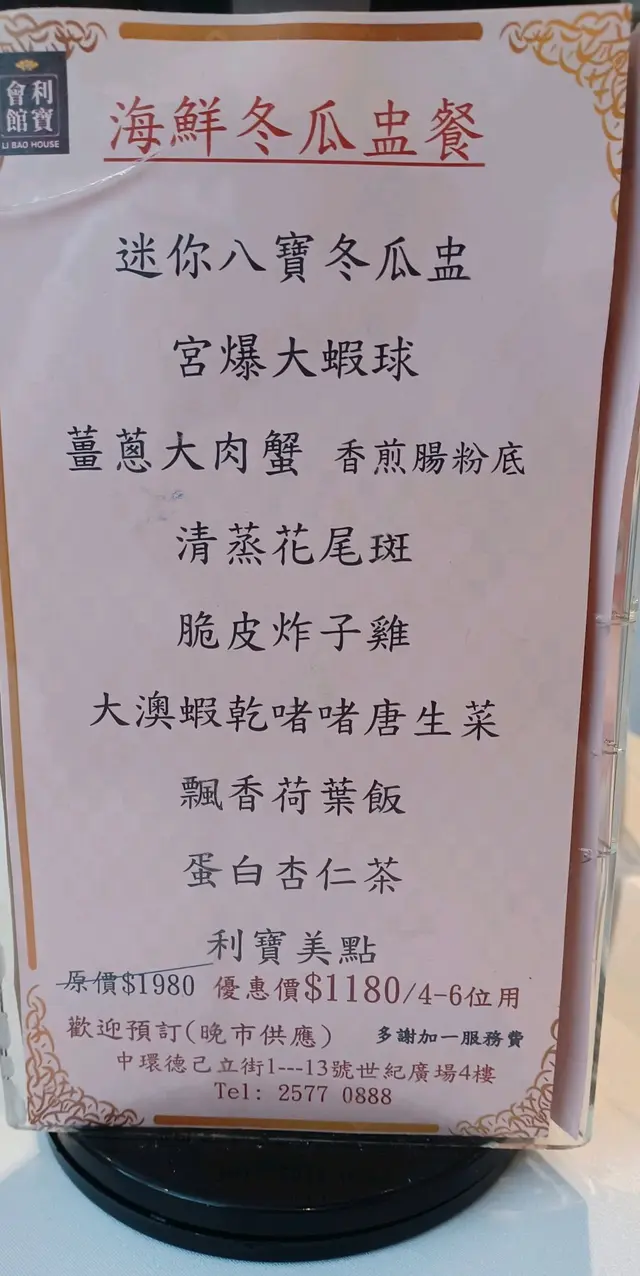 利寶會館
LI BAO HOUSE
海鮮冬瓜盅餐
迷你八寶冬瓜盅
宮爆大蝦球
薑蔥大肉蟹 香煎腸粉底
清蒸花尾斑
脆皮炸子雞
大澳蝦乾啫啫唐生菜
飄香荷葉飯
蛋白杏仁茶
利寶美點
原價$1980 優惠價$1180/4-6位用
歡迎預訂(晚市供應) 多謝加一服務費
中環德己立街1---13號世紀廣場4樓
Tel: 2577 0888